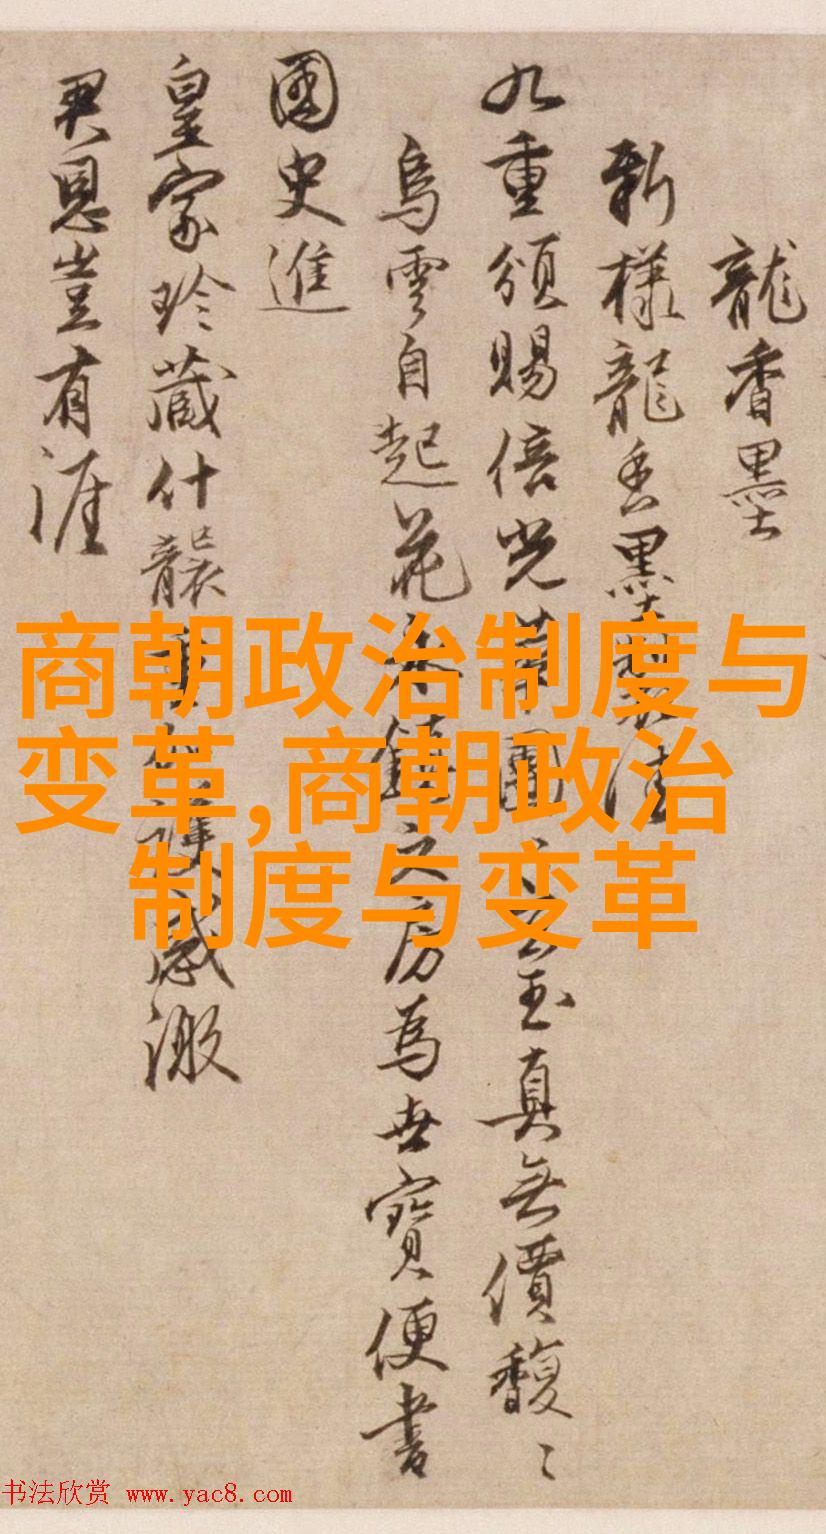 龍香墨
新樣龍香墨
九重頒賜倍光華團玉真無價馥〻
烏雲自起花文房為世寶便書
國史進
皇家珍藏什襲感激
君恩豈有涯
商朝政治制度与
变革,商朝政治
制度与变革
书法欣赏 www.yac8.com